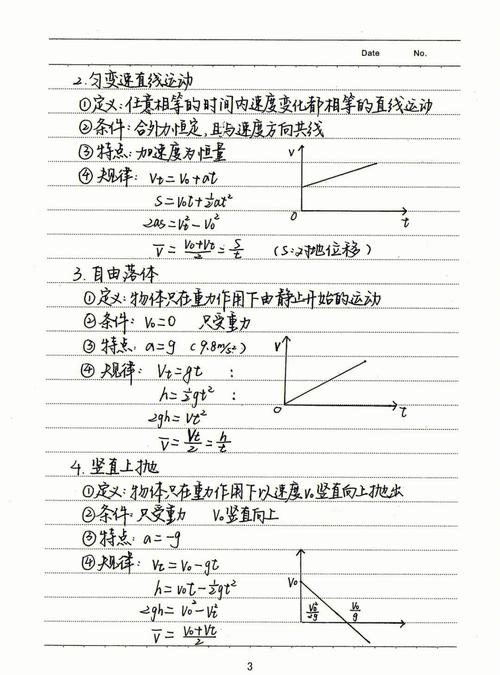 Date No.
2.匀变速直线运动
①定义:任意相等的时间内速度变化都相等的直线运动
②条件:合外力恒定,且与速度方向共线
③特点:加速度为恒量
④规律: Vt=V0+at
S=V0t+½at²
2as=Vt²-V0²
V̄=(V0+Vt)/2=S/t (S:对地位移)
V
0
t
3.自由落体
①定义:物体只在重力作用下由静止开始的运动
②条件: V0=0 只受重力
③特点: a=g (9.8m/s²)
④规律: Vt=gt :
h=½gt² :
2gh=Vt²
V̄=Vt/2=h/t
V
0
t
4.竖直上抛
①定义:物体只在重力作用下以速度V0竖直向上抛出
②条件:只受重力 V0竖直向上
③特点:a=-g
④规律: Vt=V0-gt
h=V0t-½gt²
2gh=V0²-Vt²
V̄=(V0+Vt)/2
V0
V0²/2g
V0/g
3